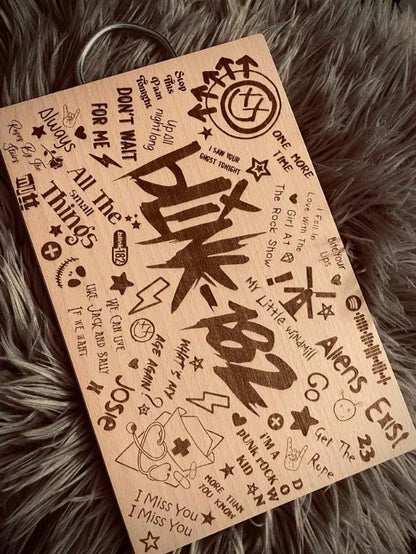 Stop
This
Pain
Tonight
DON'T WAIT
FOR ME
Up all
night long
I SAW YOUR
GHOST TONIGHT
ONE MORE
TIME
Always
Roses By The
Stairs
All The
small
Things
blink-182
blink
182
I Fell In
Love With The
Girl At
The Rock Show
Bite Your
Lips
My Little windmill
WE CAN LIVE
LIKE JACK AND SALLY
IF WE WANT
WHAT'S MY
AGE AGAIN?
Aliens
Exist
Go
Jose
I'M A
PUNK ROCK
KID
Get The
Rope
23
DOWN
MORE THAN
YOU KNOW
I Miss You
I Miss You